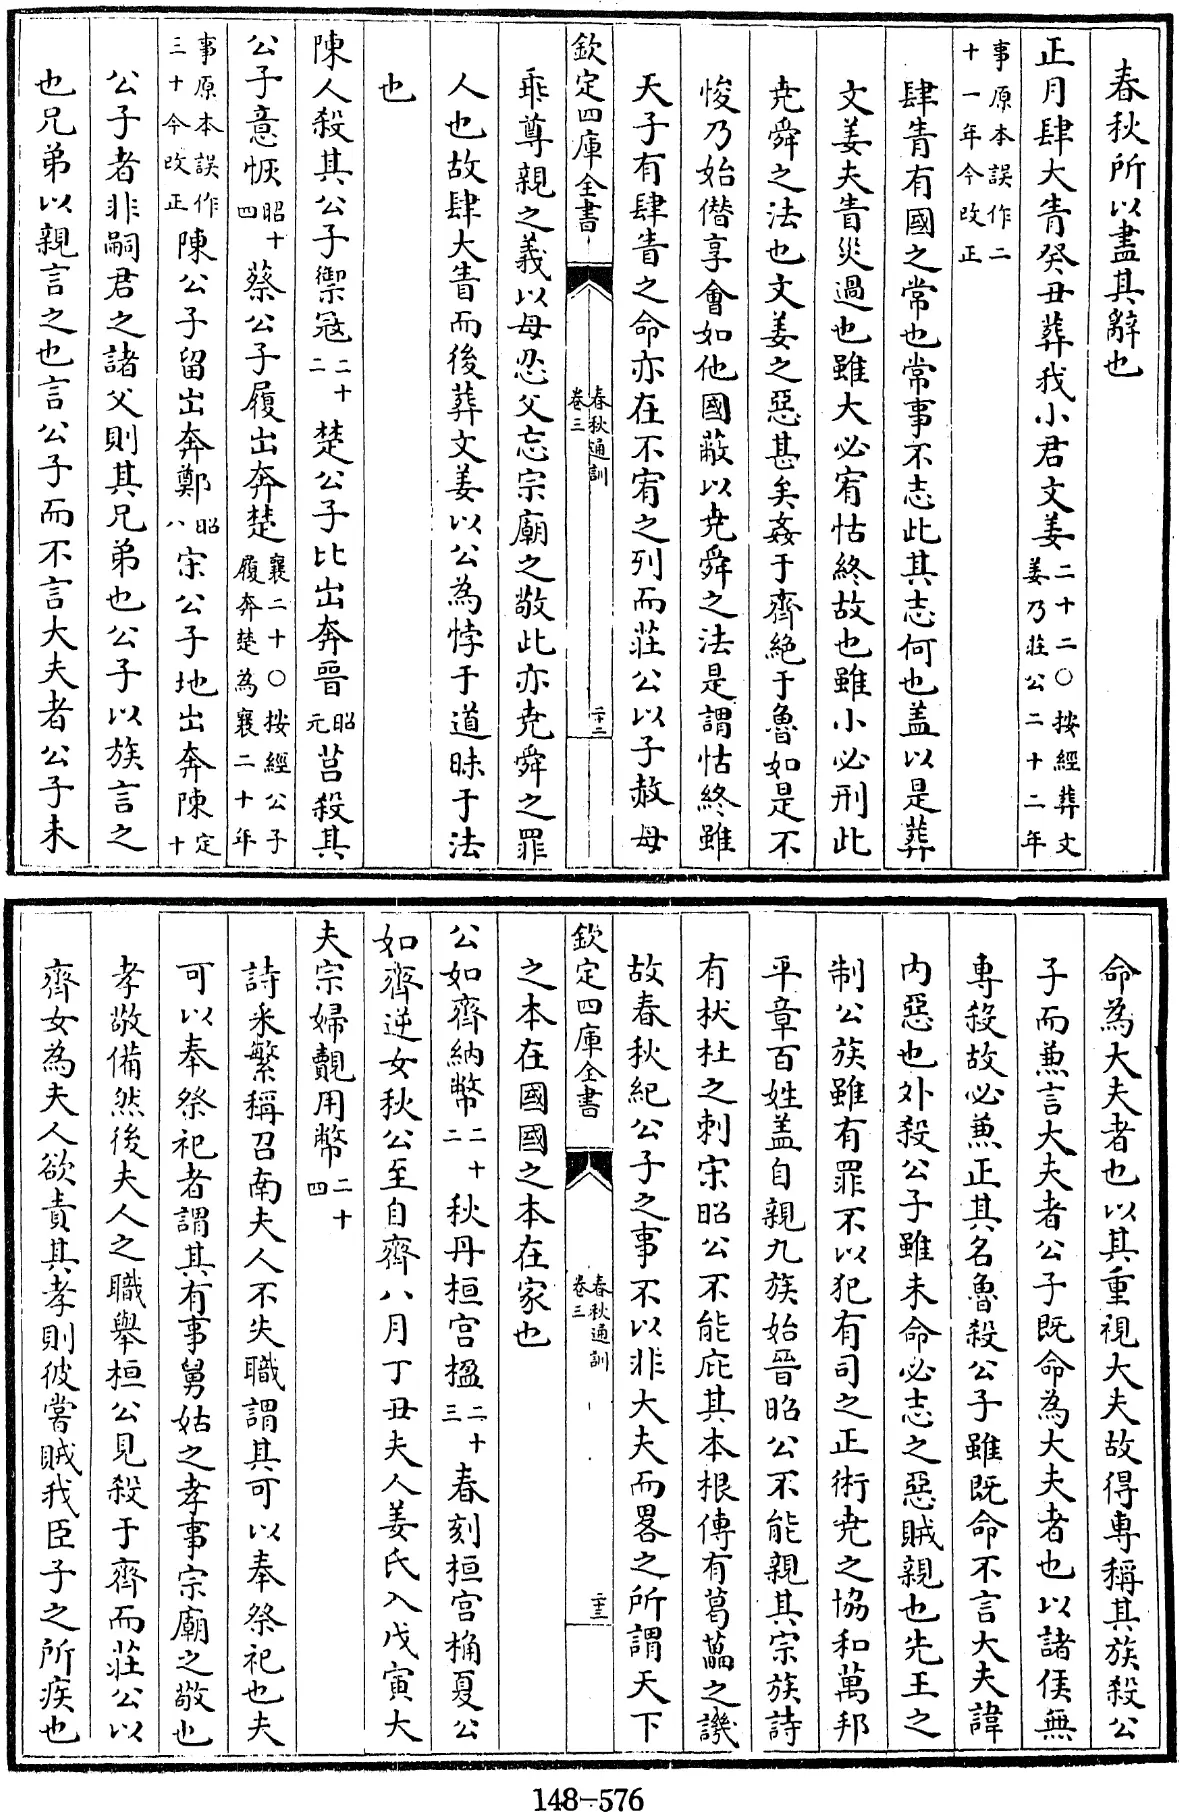 春秋所以盡其辭也
正月肆大眚癸丑葬我小君文姜二十二○按經葬文姜乃莊公二十二年
事原本誤作二十一年今改正
肆眚有國之常也常事不志此其志何也盖以是葬
文姜夫眚災過也雖大必宥怙終故也雖小必刑此
尭舜之法也文姜之惡甚矣姦于齊絶于魯如是不
悛乃始僣享會如他國蔽以尭舜之法是謂怙終雖
天子有肆眚之命亦在不宥之列而莊公以子赦母
欽定四庫全書 春秋通訓 卷三 二十二
乖尊親之義以母忍父忘宗廟之敬此亦尭舜之罪
人也故肆大眚而後葬文姜以公為悖于道昧于法
也
陳人殺其公子禦寇二十二楚公子比出奔晉昭元莒殺其
公子意恢昭十四蔡公子履出奔楚襄二十○按經公子履奔楚為襄二十年
事原本誤作三十今改正陳公子留出奔鄭昭八宋公子地出奔陳定十
公子者非嗣君之諸父則其兄弟也公子以族言之
也兄弟以親言之也言公子而不言大夫者公子未
命為大夫者也以其重視大夫故得専稱其族殺公
子而兼言大夫者公子既命為大夫者也以諸侯無
専殺故必兼正其名魯殺公子雖既命不言大夫諱
内惡也外殺公子雖未命必志之惡賊親也先王之
制公族雖有罪不以犯有司之正術尭之協和萬邦
平章百姓盖自親九族始晉昭公不能親其宗族詩
有杕杜之刺宋昭公不能庇其本根傳有葛藟之譏
故春秋紀公子之事不以非大夫而畧之所謂天下
欽定四庫全書 春秋通訓 卷三 二十三
之本在國國之本在家也
公如齊納幣二十二秋丹桓宫楹二十三春刻桓宫桷夏公
如齊逆女秋公至自齊八月丁丑夫人姜氏入戊寅大
夫宗婦覿用幣二十四
詩采繁稱召南夫人不失職謂其可以奉祭祀也夫
可以奉祭祀者謂其有事舅姑之孝事宗廟之敬也
孝敬備然後夫人之職舉桓公見殺于齊而莊公以
齊女為夫人欲責其孝則彼嘗賊我臣子之所疾也
148-576